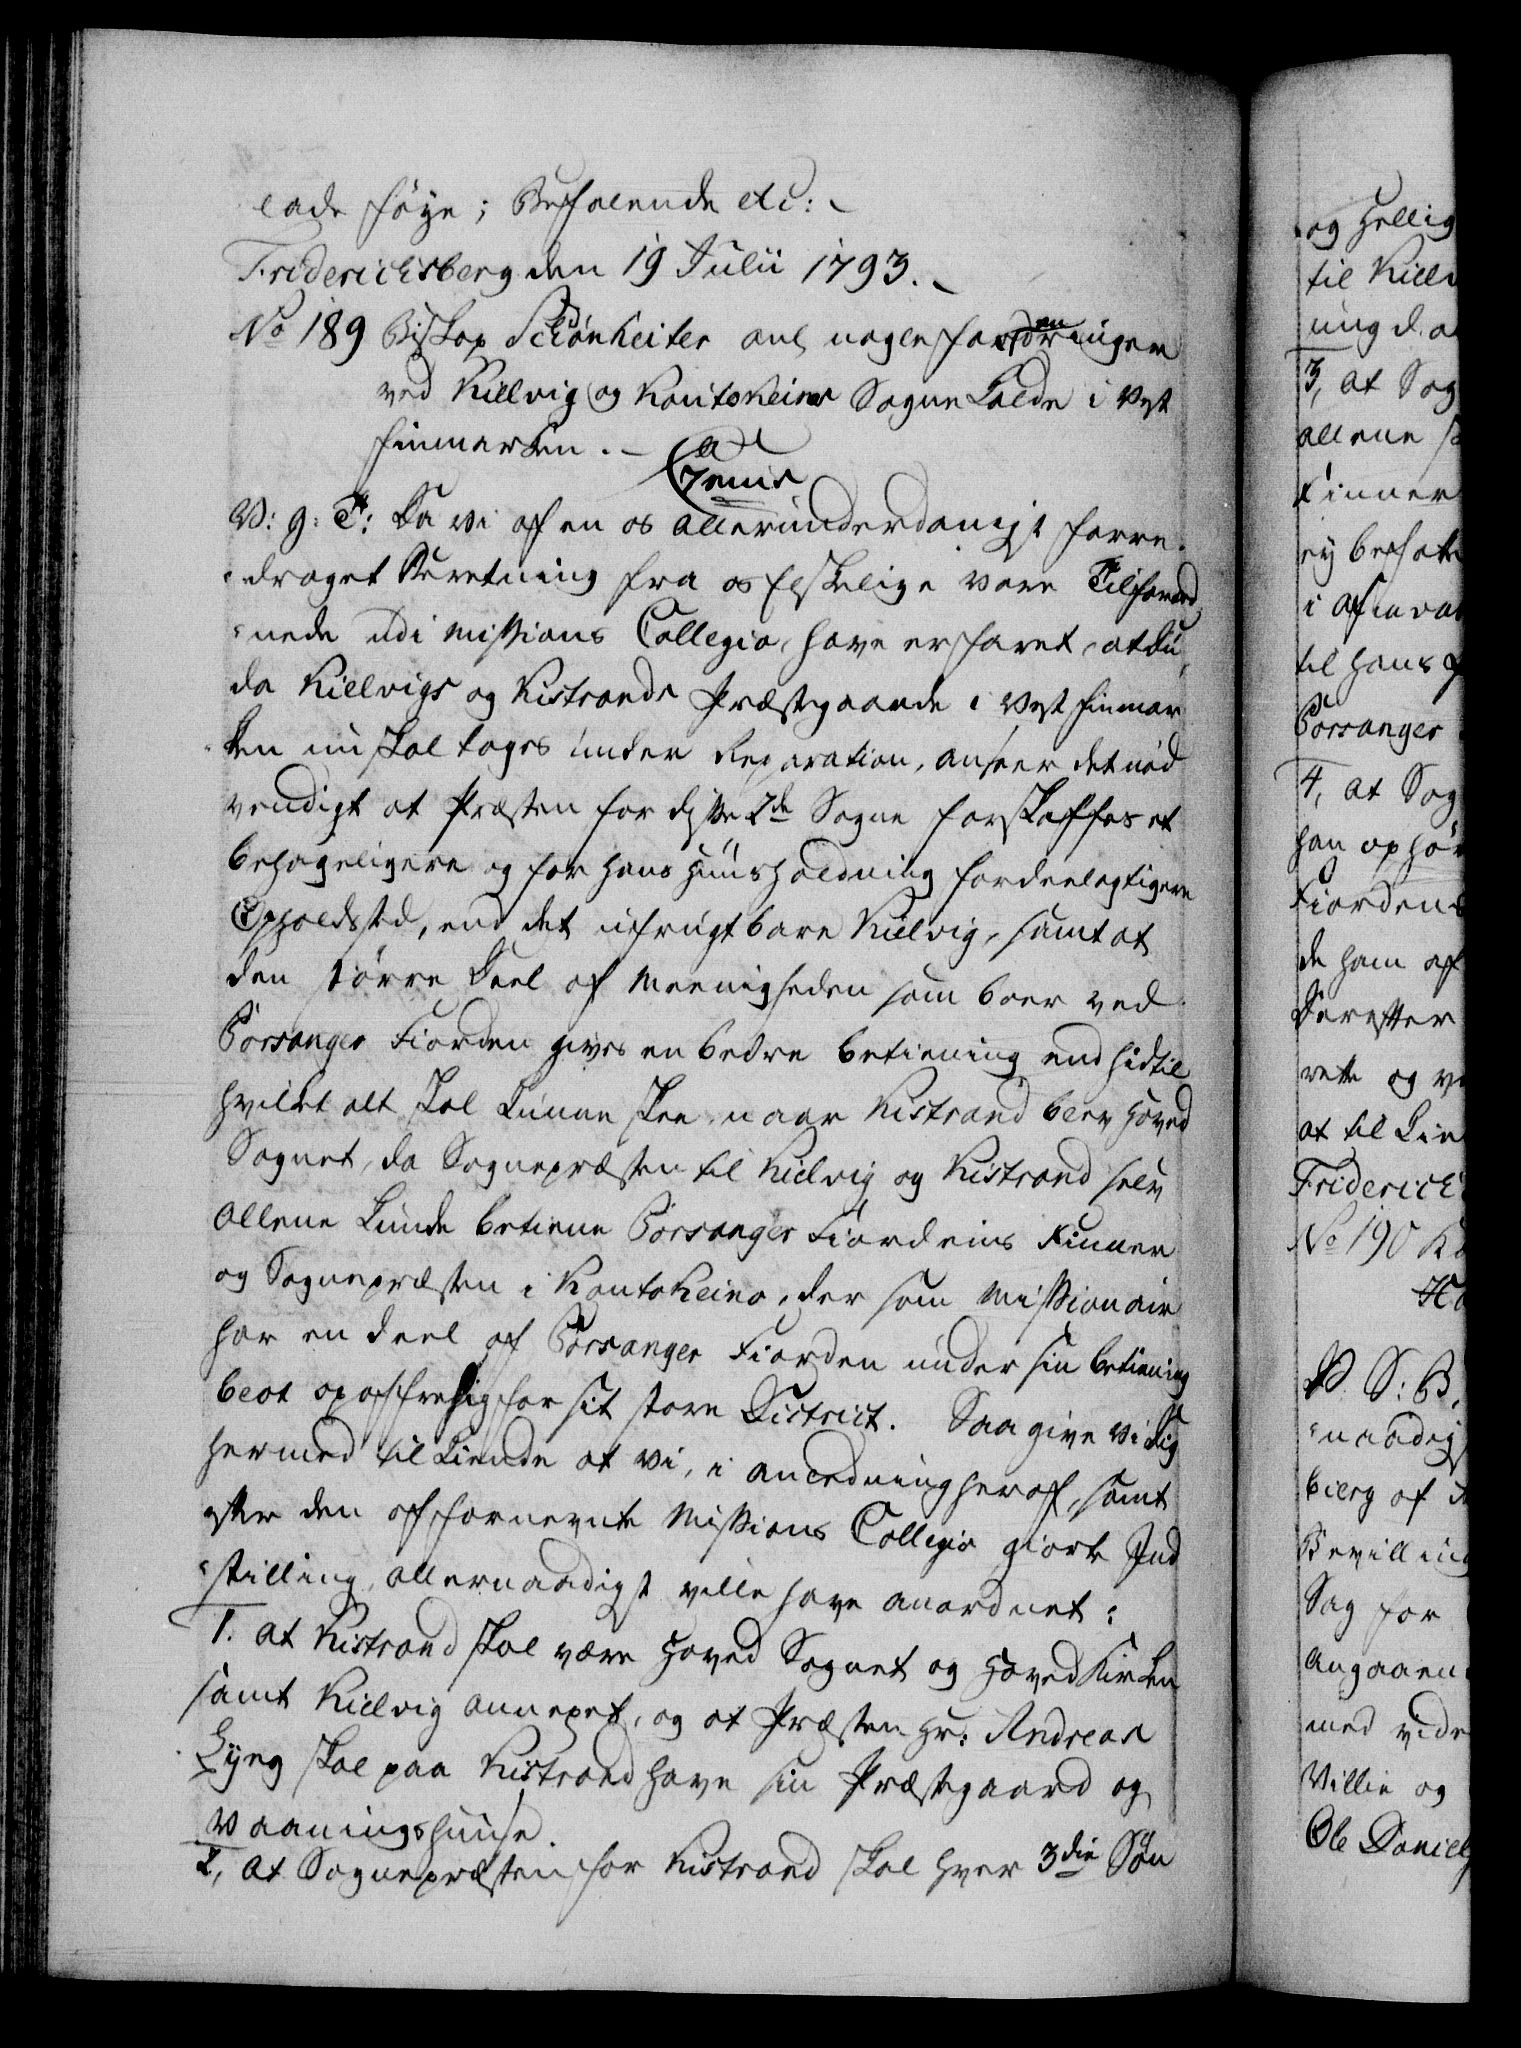 lade føye; Befalende etc: -
Friderichsberg den 19 Julii 1793. -
No 189 Biskop Schönheiter anl. nogle forandringer
ved Killvig og Koutokeino Sognekalde i Vest
finmarken. -
Gratis
V: g: T: Da vi af en os allerunderdanigst forre-
draget Beretning fra os Elskelige vore Tilforord
nede udi Missions Collegio, have erfaret, at Du,
da Killvigs og Kistrands Præstegaarde i Vest finmar
ken nu skal tages under Reparation, anseer det nød
vendigt at Præsten for disse 2de Sogne forskaffes et
behageligere og for hans Huusholdning fordeelagtigere
Opholdsted, end det ufrugtbare Kielvig, samt at
den større Deel af Meenigheden som boer ved
Porsanger Fiorden gives en bedre betiening end hidtil
hvilket alt skal kunne skee naar Kistrand blev Hoved
Sognet, da Sognepræsten til Kielvig og Kistrand selv
allene kunde betiene Porsanger Fiordens Finner
og Sognepræsten i Koutokeino, der som Missionair
har en deel af Porsanger Fiorden under sin betiening
blot opoffre sig for sit store District. Saa give vi Dig
hermed tilkiende at vi, i anledning heraf, samt
efter den af fornevnte Missions Collegio giorte Ind
stilling, allernaadigst ville have anordnet:
1. at Kistrand skal være Hoved Sognet og Hovedkirken
samt Kielvig annexet, og at Præsten Hr: Andreas
Lyng skal paa Kistrand have sin Præstegaard og
Vaaningshuuse.
2, at Sognepræsten for Kistrand skal hver 3die Søn
og Hellig
til Killv
ning d. a
3, at Sog
allene s
Finner
ey befat
til hans
Porsanger
4, at Sog
han ophør
Fiordens
de ham af
Derefter
rette og v
at til Lie
Friderich
No 190 K
V. S: B.
naadig
bierg af
Bevilling
Sag for
angaaen
med vide
Villie og
Ole Daniels